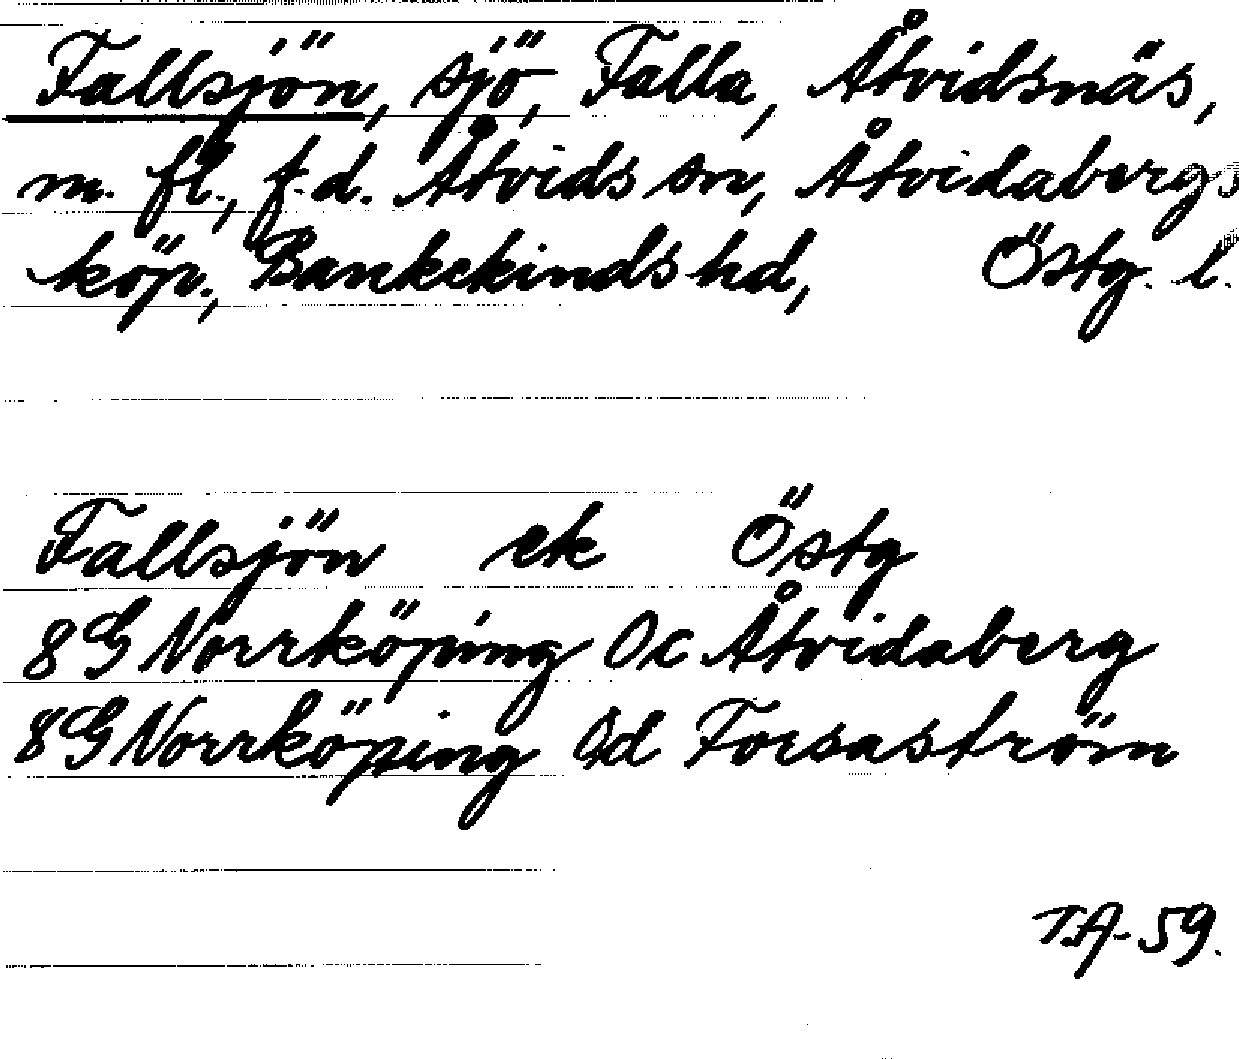 Fallsjön, sjö, Falla, Åtvidsnäs,
m. fl., f.d. Åtvids sn, Åtvidabergs
köp., Bankekinds hd, Östg. l.
Fallsjön ek Östg
8G Norrköping 0c Åtvidaberg
8G Norrköping 0d Forsaström
T.A. 59.